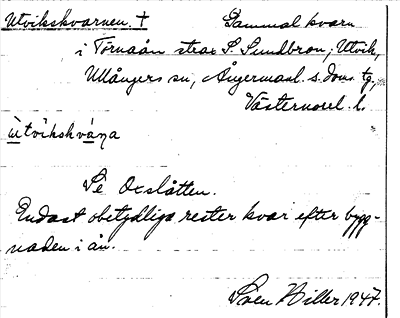 Utvikskvarnen. † Gammal kvarn
i Tornaån strax S. Sundbron, Utvik,
Ullångers sn, Ångermanl. s. doms. tg,
Västernorrl. l.
ùtvikskvána
Se Oxslåtten.
Endast obetydliga rester kvar efter bygg-
naden i ån.
Sven Hiller 1947.